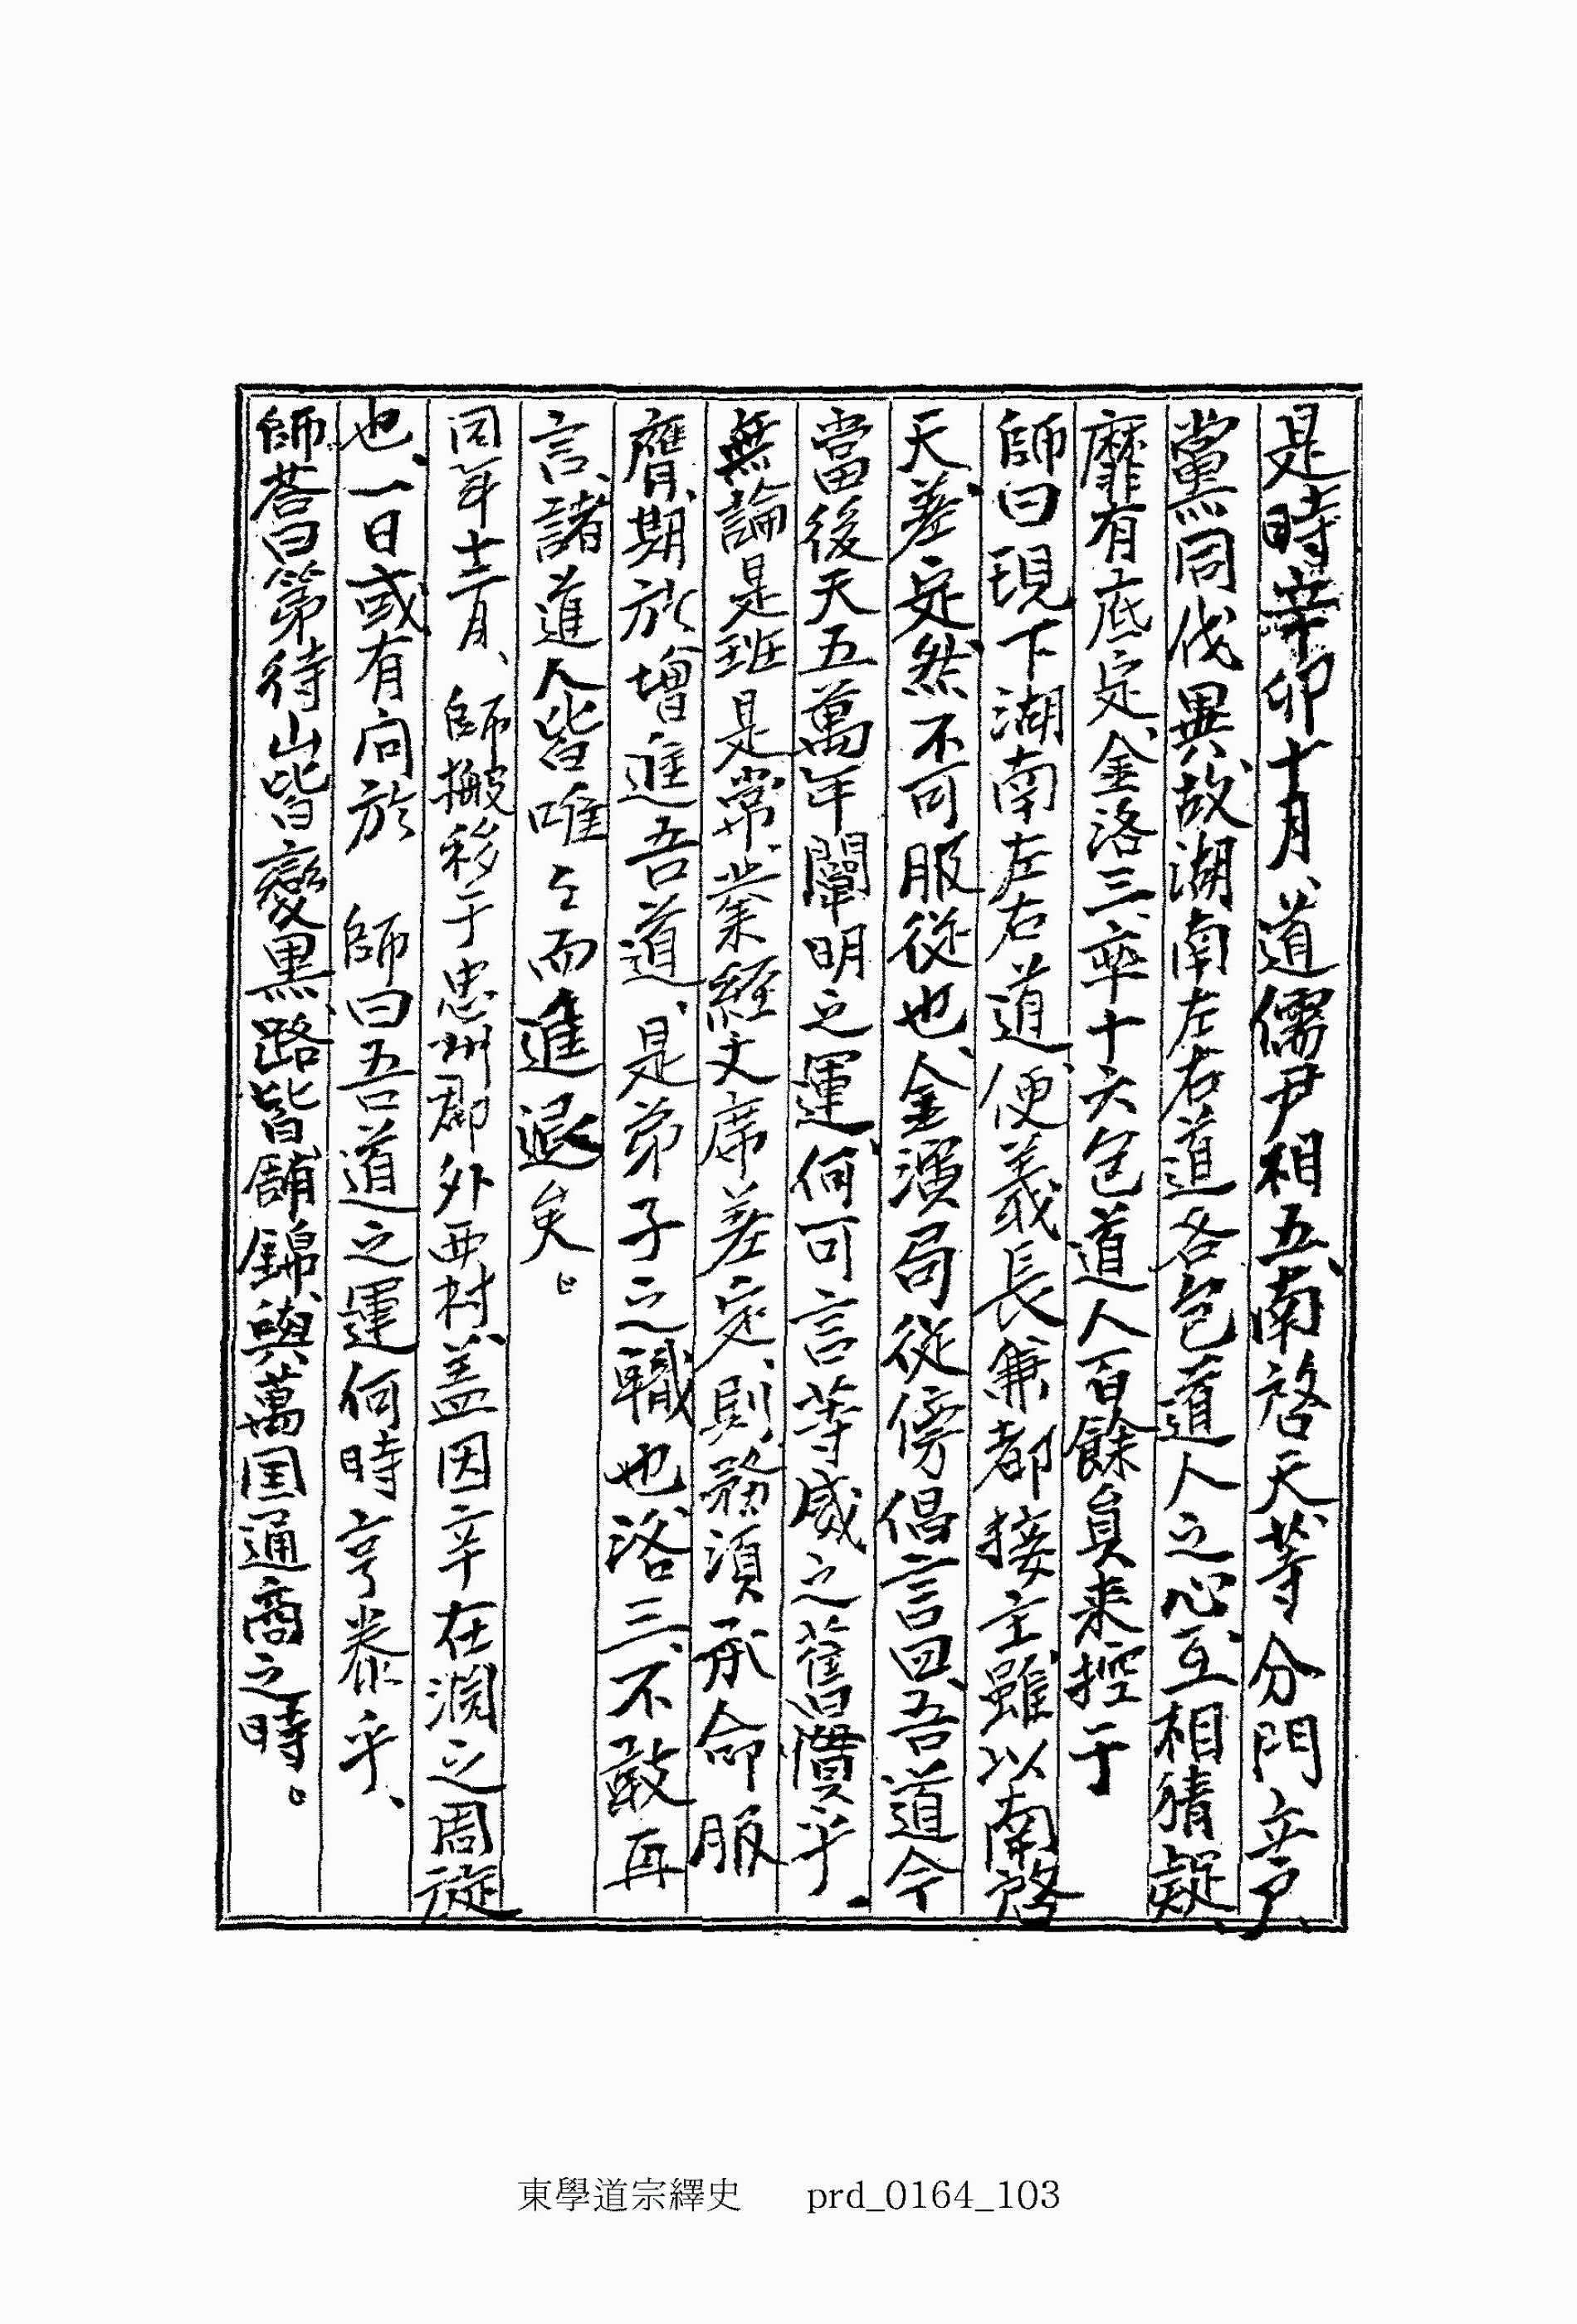 是時辛卯十月、道儒尹相五、南啓天、等分門立戶、
黨同伐異、故湖南左右道各包道人之心、互相猜疑、
靡有底定、金洛三、率十六包道人百餘員来控于
師曰現下湖南左右道、便義長兼都接主、雖以南啓
天、差定、然不可服從也、金演局從傍倡言曰、吾道今
當後天五萬年闡明之運、何可言等威之舊慣乎、
無論是班是常、業經文席差定、則務須承命服
膺、期於增進吾道、是弟子之職也、洛三、不敢再
言、諸道人皆唯々而進退矣。
同年十二月、師搬移于忠州郡外西村、盖因辛在淵之周旋
也、一日或有向於　師曰吾道之運何時亨泰乎、
師荅曰第待山皆變黑、路皆鋪錦、與萬国通商之時。
東學道宗繹史 prd_0164_103